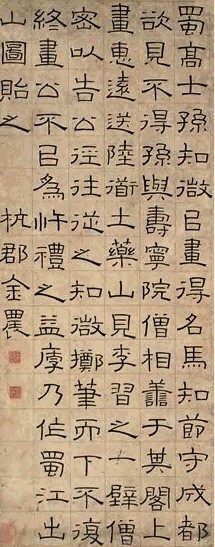 蜀高士孫知微㠯畫得名馬知節守成都
欲見不得孫與壽寧院僧相譱于其閣上
畫惠遠送陸衟士藥山見李習之二壁僧
密以告公徑往從之知微擲筆而下不復
終畫公不㠯為忤禮之益厚乃作蜀江出
山圖貽之 杭郡金農